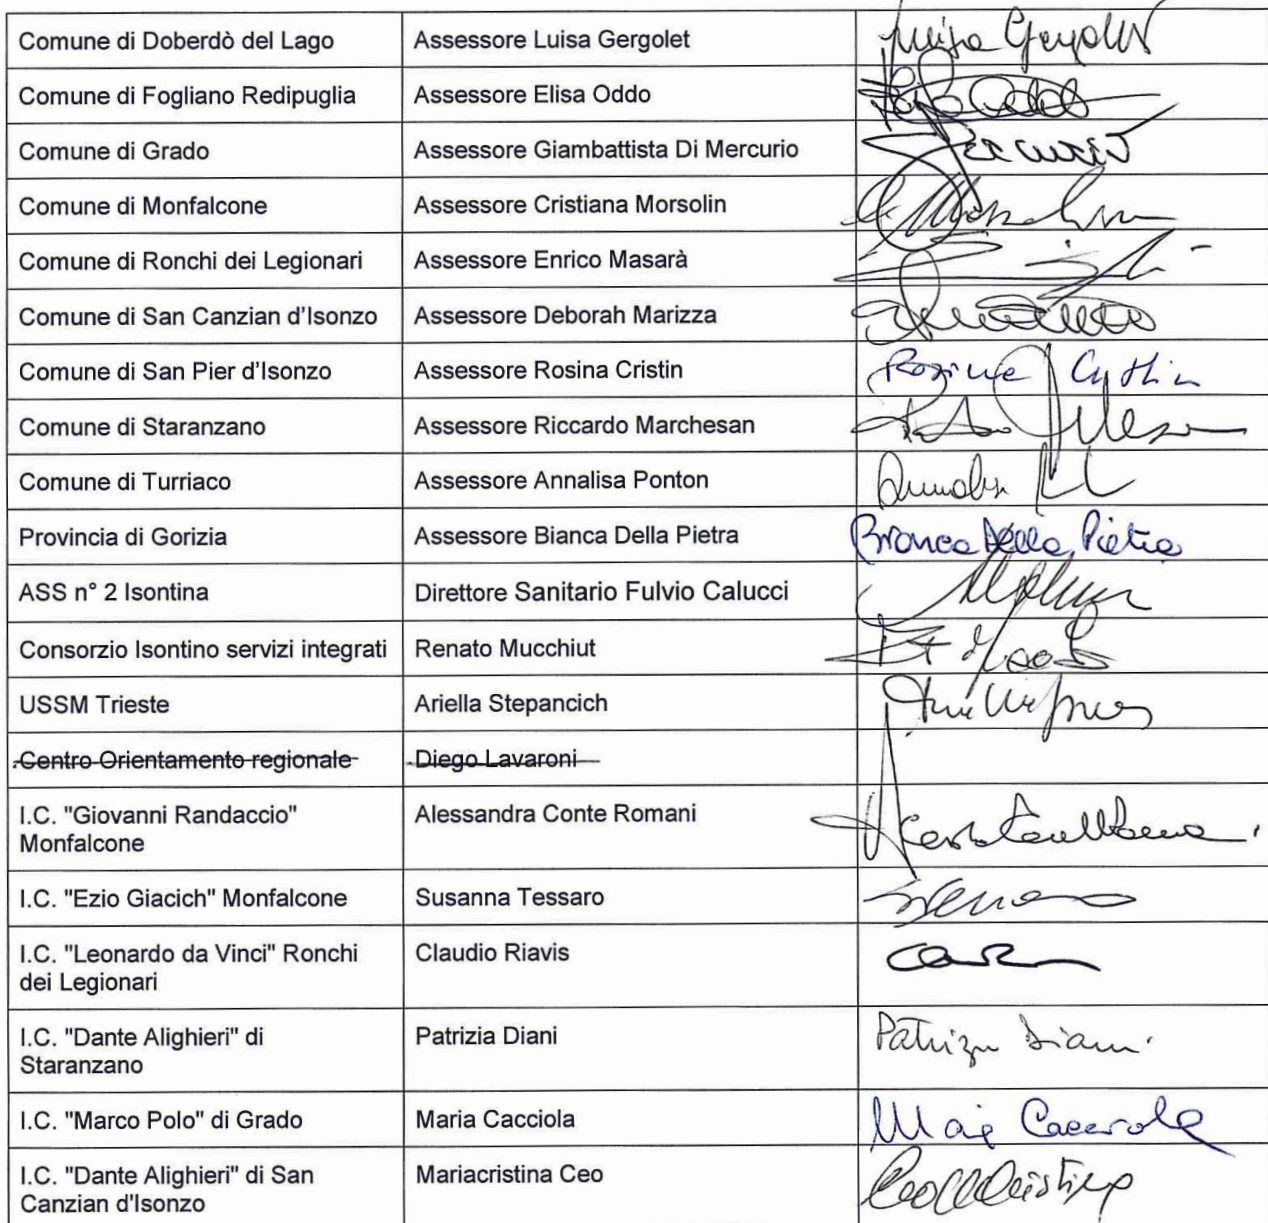 Comune di Doberdò del Lago Assessore Luisa Gergolet Luisa Gergolet
Comune di Fogliano Redipuglia Assessore Elisa Oddo
Comune di Grado Assessore Giambattista Di Mercurio
Comune di Monfalcone Assessore Cristiana Morsolin
Comune di Ronchi dei Legionari Assessore Enrico Masarà
Comune di San Canzian d'Isonzo Assessore Deborah Marizza
Comune di San Pier d'Isonzo Assessore Rosina Cristin Rosina Cristin
Comune di Staranzano Assessore Riccardo Marchesan
Comune di Turriaco Assessore Annalisa Ponton
Provincia di Gorizia Assessore Bianca Della Pietra Bianca Della Pietra
ASS n° 2 Isontina Direttore Sanitario Fulvio Calucci
Consorzio Isontino servizi integrati Renato Mucchiut
USSM Trieste Ariella Stepancich
Centro Orientamento regionale Diego Lavaroni
I.C. "Giovanni Randaccio" Alessandra Conte Romani
Monfalcone
I.C. "Ezio Giacich" Monfalcone Susanna Tessaro
I.C. "Leonardo da Vinci" Ronchi Claudio Riavis
dei Legionari
I.C. "Dante Alighieri" di Patrizia Diani Patrizia Diani
Staranzano
I.C. "Marco Polo" di Grado Maria Cacciola
I.C. "Dante Alighieri" di San Mariacristina Ceo
Canzian d'Isonzo